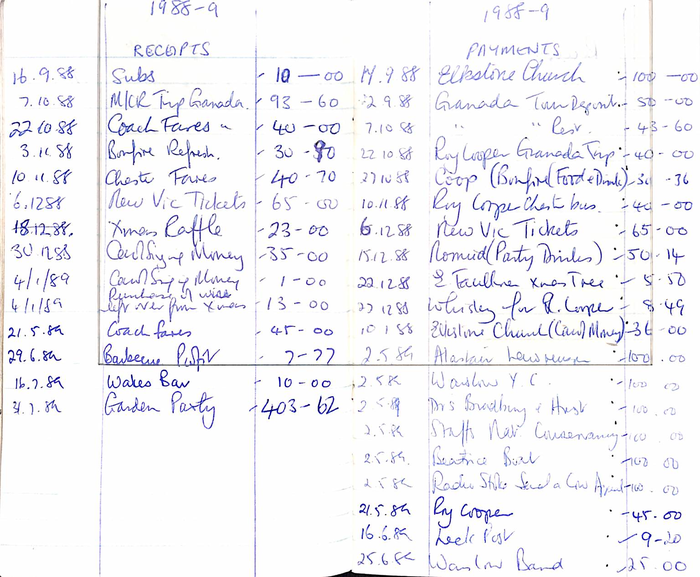 1988-9
RECEIPTS
16.9.88 Subs - 10-00
7.10.88 M/CR Trip Granada. - 93-60
22.10.88 Coach Fares " - 40-00
3.11.88 Bonfire Refresh. - 30-90
10.11.88 Chester Fares - 40-70
6.12.88 New Vic Tickets - 65-00
18.12.88. Xmas Raffle - 23-00
30.12.88 Carol Singing Money - 35-00
4/1/89 Carol Singing Money - 1-00
4/1/89 Purchase of wine
left over from Xmas - 13-00
21.5.89 Coach fares - 45-00
29.6.89 Barbecue Profit - 7-77
16.7.89 Wakes Bar - 10-00
31.7.89 Garden Party - 403-62
1988-9
PAYMENTS
17.9.88 Elkstone Church - 100-00
2.9.88 Granada Tour Deposit - 50-00
7.10.88 " " Rest. - 43-60
22.10.88 Roy Cooper Granada Trip - 40-00
27.10.88 Coop (Bonfire (Food & Drink) - 36
10.11.88 Roy Cooper Chester bus. - 40-00
6.12.88 New Vic Tickets - 65-00
15.12.88 (Party Drinks) - 50-14
22.12.88 E Faulkner Xmas Tree - 8-50
27.12.88 Whisky for R. Cooper - 8-49
10.1.88 Elkstone Church (Carol Money) - 36-00
2.5.89 Alastair - 100.00
2.5.89 Warslow Y.C. - 100 00
2.5.89 Drs Bradbury & Hurst - 100.00
2.5.89 Staffs Nat. Conservancy - 100.00
2.5.89. Beatrice Boat - 100.00
2.5.89 Radio Stoke Send a Cow Appeal - 100.00
21.5.89 Roy Cooper - 45.00
16.6.89 Leek Post - 9-20
25.6.89 Warslow Band - 25.00